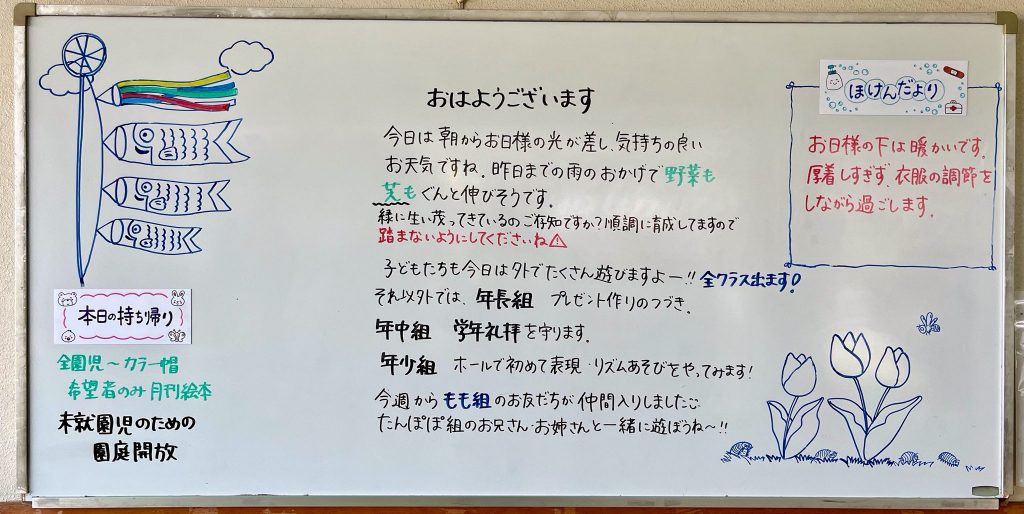 おはようございます
今日は朝からお日様の光が差し、気持ちの良い
お天気ですね。昨日までの雨のおかげで野菜も
芝もぐんと伸びそうです。
緑に生い茂ってきているのご存知ですか？順調に育成してますので
踏まないようにしてくださいね⚠
子どもたちも今日は外でたくさん遊びますよー!! 全クラス出ます!
それ以外では、年長組 プレゼント作りのつづき。
年中組 学年礼拝を守ります。
年少組 ホールで初めて表現・リズムあそびをやってみます!
今週からもも組のお友だちが仲間入りしました
たんぽぽ組のお兄さん・お姉さんと一緒に遊ぼうね〜!!
ほけんだより
お日様の下は暖かいです。
厚着しすぎず、衣服の調節を
しながら過ごします。
本日の持ち帰り
全園児〜カラー帽
希望者のみ月刊絵本
未就園児のための
園庭開放